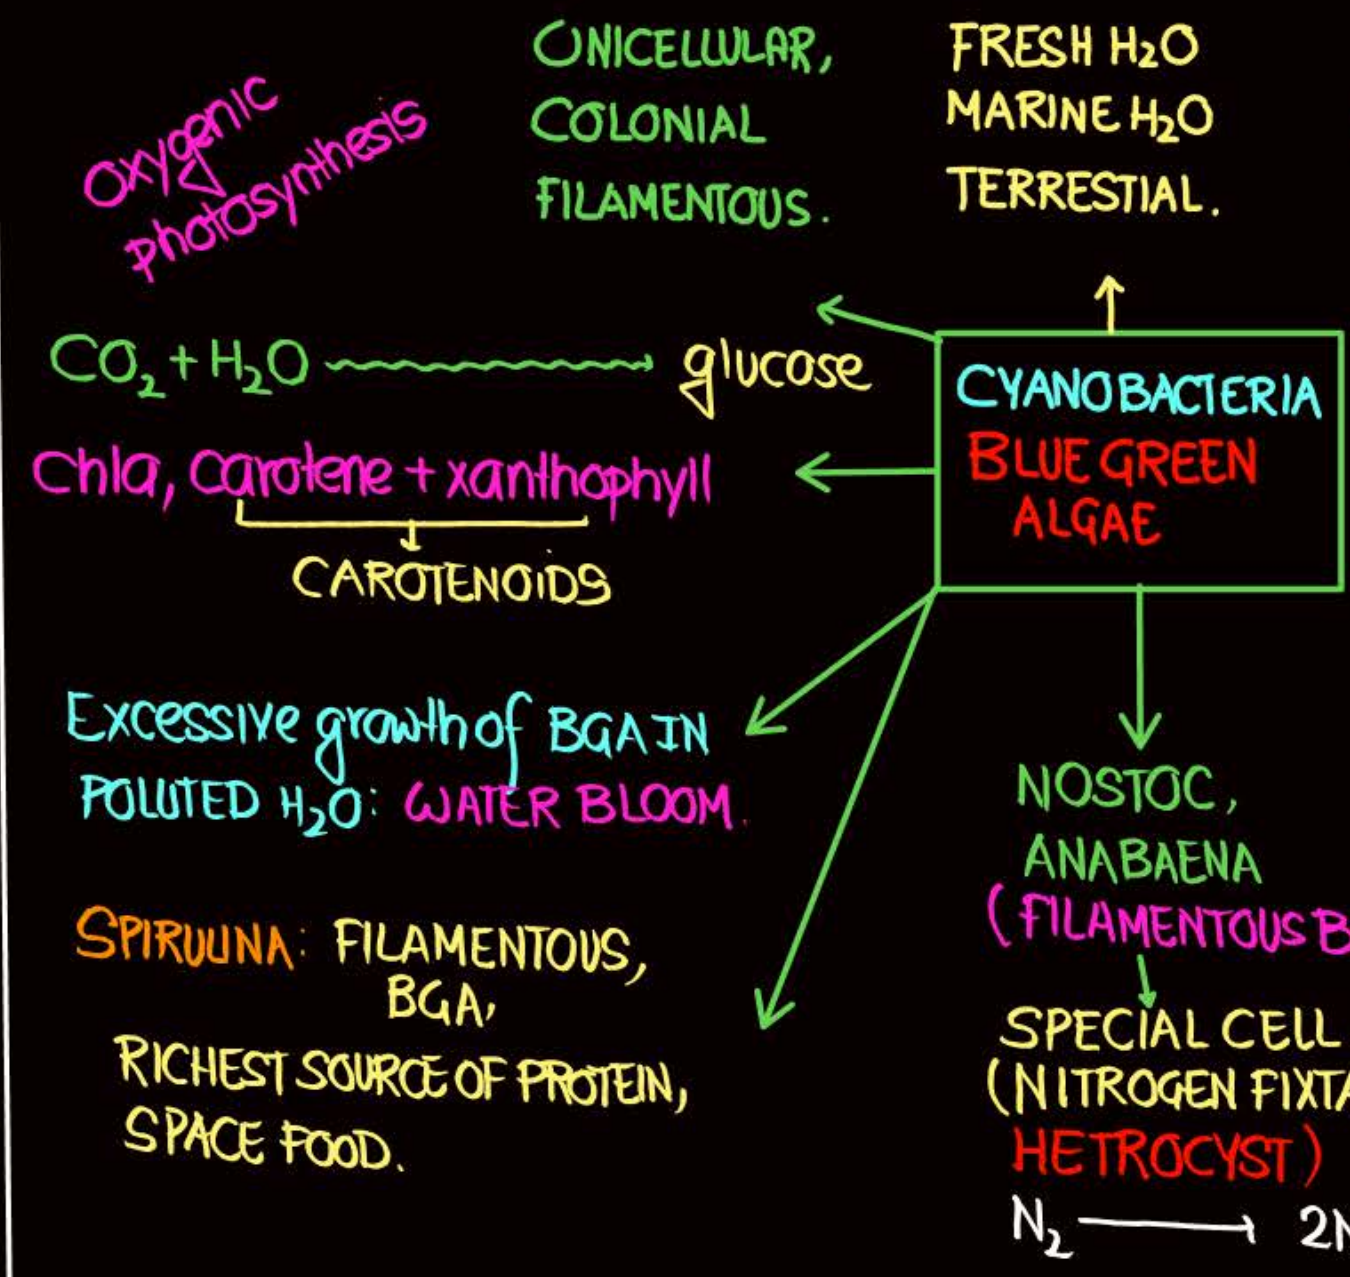 Oxygenic
photosynthesis
UNICELLULAR,
COLONIAL
FILAMENTOUS.
FRESH H2O
MARINE H2O
TERRESTIAL.
CO2 + H2O → glucose
Chla, carotene + xanthophyll
CAROTENOIDS
CYANOBACTERIA
BLUE GREEN
ALGAE
Excessive growth of BGA IN
POLUTED H2O: WATER BLOOM.
SPIRULINA: FILAMENTOUS,
BGA,
RICHEST SOURCE OF PROTEIN,
SPACE FOOD.
NOSTOC,
ANABAENA
(FILAMENTOUS B
SPECIAL CELL
(NITROGEN FIXTA
HETROCYST)
N2 → 2N